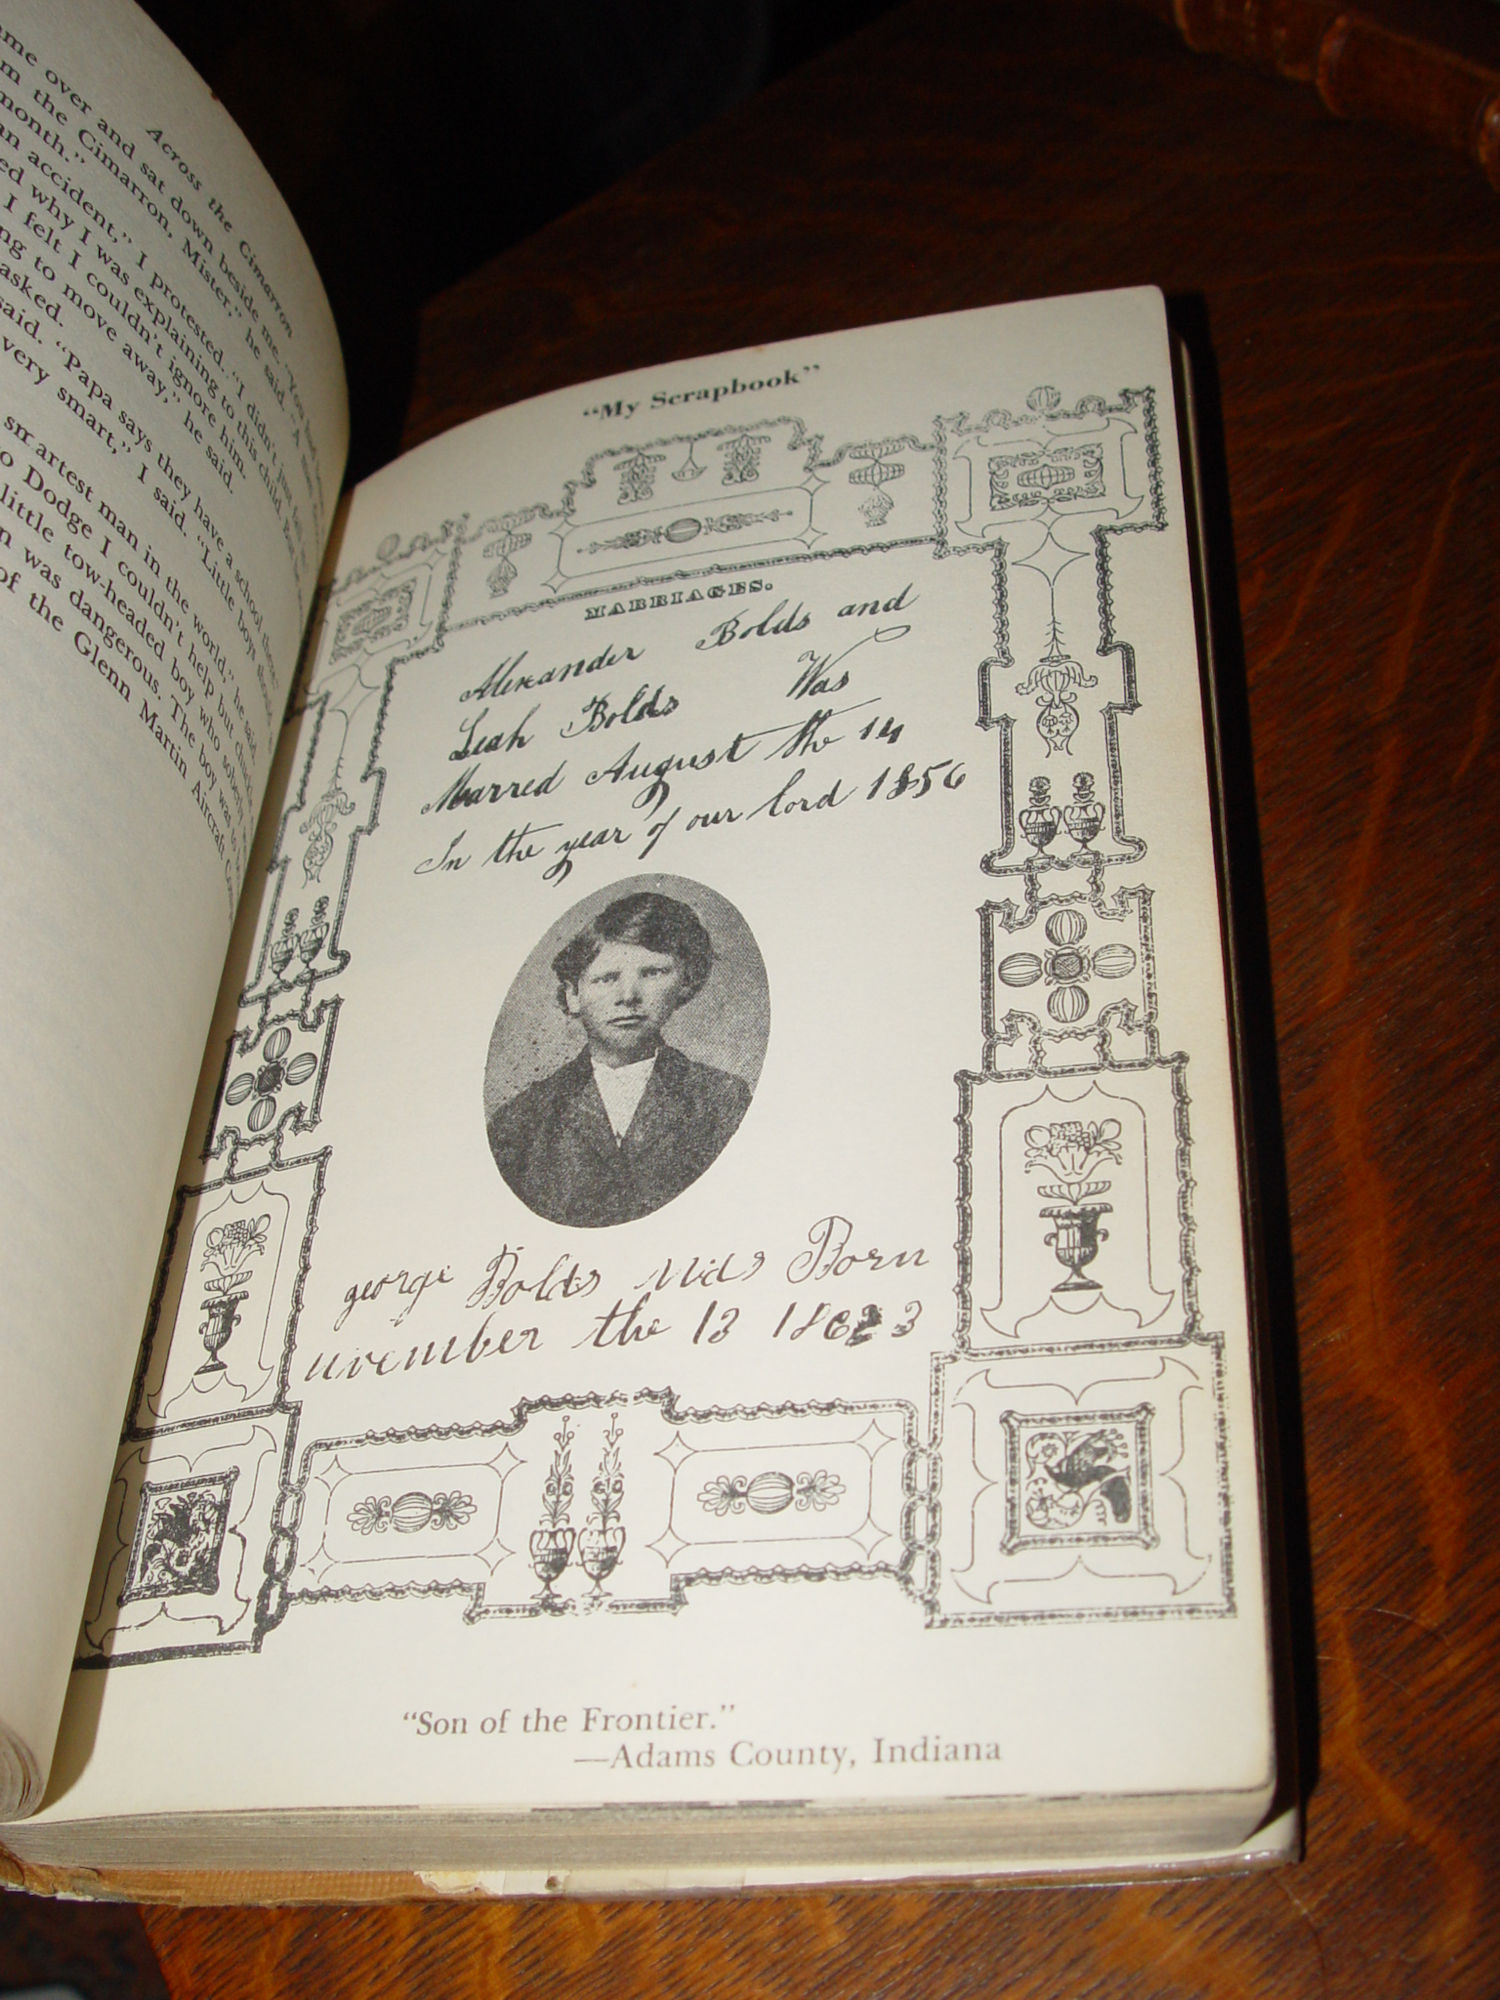 Across the Cimarron
me over and sat down beside me. "You had
m the Cimarron, Mister," he said. "A
month."
an accident," I protested. "I didn't just
ed why I was explaining to this child. But
I felt I couldn't ignore him.
ng to move away," he said.
asked.
said. "Papa says they have a school there.
very smart," I said. "Little boys should
smartest man in the world," he said.
o Dodge I couldn't help but chuckle
little tow-headed boy who soberly
n was dangerous. The boy was to
of the Glenn Martin Aircraft
"My Scrapbook"
MARRIAGES.
Alexander Bolds and
Leah Bolds Was
Marred August the 14
In the year of our lord 1856
george Bolds was Born
november the 13 1863
"Son of the Frontier."
—Adams County, Indiana